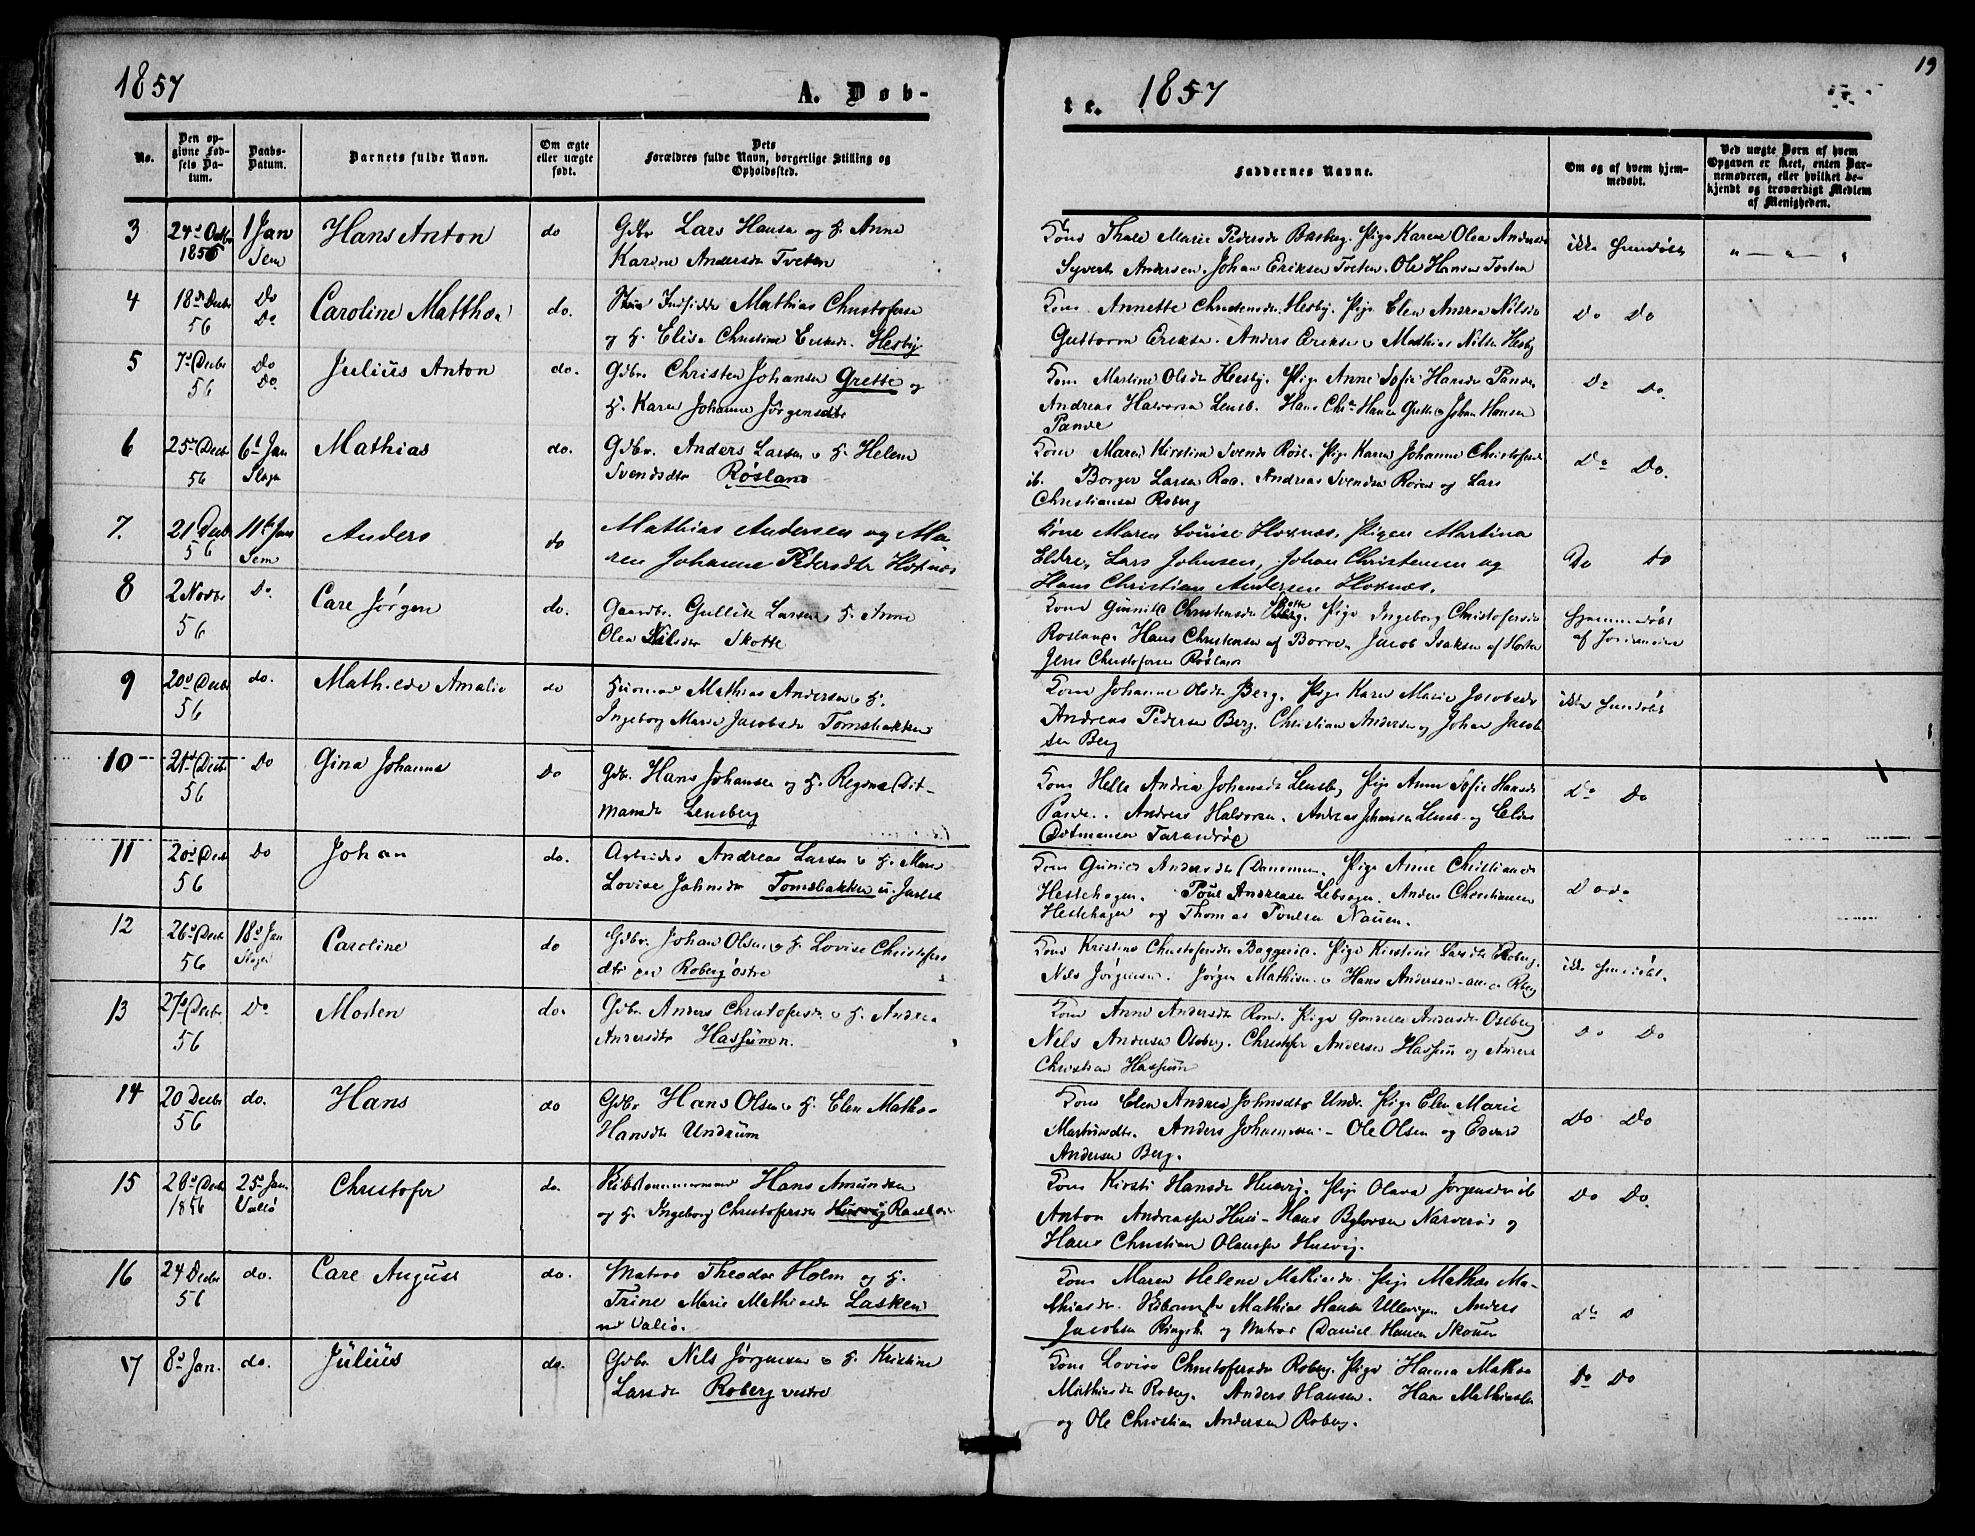 1857
A. Døb-
te.
1857
19
No.
Den op-
givne Fød-
sels Da-
tum.
Daabs-
Datum.
Barnets fulde Navn.
Om ægte
eller uægte
født.
Dets
Forældres fulde Navn, borgerlige Stilling og
Opholdssted.
Faddernes Navne.
Om og af hvem hjem-
medøbt.
Ved uægte Børn af hvem
Opgaven er skeet, enten Bar-
nemoderen, eller hvilket be-
kjendt og troværdigt Medlem
af Menigheden.
3
24d Octbr
1856
1 Jan
Sem
Hans Anton
do
Gdbr Lars Hansen og H. Anne
Karine Andersdr Tveten
Marie Pedersdr Basberg. Pige Karen Olea Andersd
Syvert Andersen. Johan Eriksen Tveten. Ole Hansen Tveten
ikke
4
18d Decbr
56
Do
Do
Caroline Matthea
do.
Mathias Christofersen
og H. Elise Christine Hesby
Annette Christensdr Hesby. Pige Elen Andrea Nilsdr
Eriksen. Anders Eriksen Mathias Nilsen Hesby
Do Do
5
7d Decbr
56
Do
Do.
Julius Anton
do.
Gdbr Christen Johansen Grette og
H. Karen Johanne Jørgensdtr
Martine Olsdr Hesby. Pige Anne Sofie Hansdr Pande,
Andreas Halvorsen Lensb. Hans Chr Hansen Grette Johan Hansen
Pande
Do Do.
6
25d Decbr
56
6d Jan
Slagn
Mathias
do.
Gdbr. Anders Larsen H. Helene
Svendsdtr Røsland
Maren Kirstine Svends Røsl. Pige Karen Johanne Christofersdr
ib. Borger Larsen Andreas Svendsen og Lars
Christiansen Roberg
Do Do.
7.
21 Decbr
56
11te Jan
Sem
Anders
do
Mathias Andersen og Ma-
ren Johanne Pedersdtr Hoxnes
Kone Maren Louise Hoxnes, Pigen Martina
Eldre, Lars Johnsen, Johan Christensen og
Hans Christian Andersen Hoxnes.
Do Do
8
2 Novbr
56
Do.
Carl Jørgen
do.
Gaardbr. Gullik Larsen H. Anne
Olea Nilsdr Skotte
Gunnild Christensdr Skotte Pige Ingeborg Christofersdr
Rosland. Hans Christensen af Borre. Jacob Isaksen af Horten
Jens Christofersen Røsland
Hjemmedøbt
af Jordemoder
9
20d Decbr
56
do.
Mathilde Amalie
do
Mathias Andersen H.
Ingeborg Marie Jacobsdr Tomsbakken
Johanne Olsdr Berg. Pige Karen Marie Jacobsdr
Andreas Pedersen Berg. Christian Andersen og Johan Jacob
sen Berg
ikke
10
21d Decbr
56
Do
Gina Johanne
Do
Gdbr. Hans Johansen og H. Regine Dit-
mansdr Lensberg
Helle Andrea Johansdr Lensb. Pige Anne Sofie Hansdr
Pande. Andreas Halvorsen. Andreas Johansen Lensb. og Elias
Ditmansen Tarandrød
do Do
11
20d Decbr
56
Do
Johan
do.
Arbeider Andreas Larsen H. Maren
Lovise Johnsdr Tomsbakken u. Jarlsb
Andersdr Pige Anne Christiansdr
Hestehagen. Poul Andreasen Anders Christiansen
Hestehagen og Thomas Poulsen Nauen.
Do do.
12
26d Decbr
56
18d Jan
Slagn
Caroline
do
Gdbr. Johan Olsen H. Lovise Christofers
dtr Roberg østre
Kristine Christofersdtr Baggerød. Pige Kirstine Larsdtr Roberg.
Nils Jørgensen. Jørgen Mathisen Hans Andersen
ikke
13
27d Decbr
56
Do
Morten
do.
Gdbr Anders Christofersen H. Andrea
Andersdtr Hassum n.
Anne Andersdtr Rom. Pige Andersdtr Oseberg
Nels Andersen Oseberg. Christofer Andersen Hassum og Anders
Christian Hassum
Do Do
14
20 Decbr
56
do.
Hans
do
Gdbr Hans Olsen H. Elen Mathea
Hansdtr Undrum
Elen Andrea Johnsdtr Undr. Pige Elen Marie
Anders Johannesen - Ole Olsen og Edvard
Andersen Berg.
Do Do
15
28d Decbr
1856
25d Jan.
Vallø
Christofer
do.
Skibstømmermand Hans Amundsen
og H. Ingeborg Christofersdtr
Kirsti Hansdr Husvig. Pige Olava Jørgensdr ib
Anton Andreassen Husv - Hans Narverød og
Hans Christian Olaussen Husvig.
Do Do.
16
24 Decbr
56
do.
Carl August
do.
Matros Theodor Holm og H.
Trine Marie Mathisdr Lasken
ved Vallø.
Maren Helene Mathisdr. Pige Mathea Ma-
thiasdr. Mathias Hansen Ulleviggen Anders
Jacobsen og Matros Daniel Hansen
do
17
8d Jan.
do.
Julius
do.
Gdbr Nels Jørgensen H. Kristine
Larsdr Roberg vestre
Lovise Christofersdr Roberg. Pige Hanna Mathea
Mathiasdr Roberg. Anders Hansen. Hans Mathiassen
og Ole Christian Andersen Roberg.
Do Do